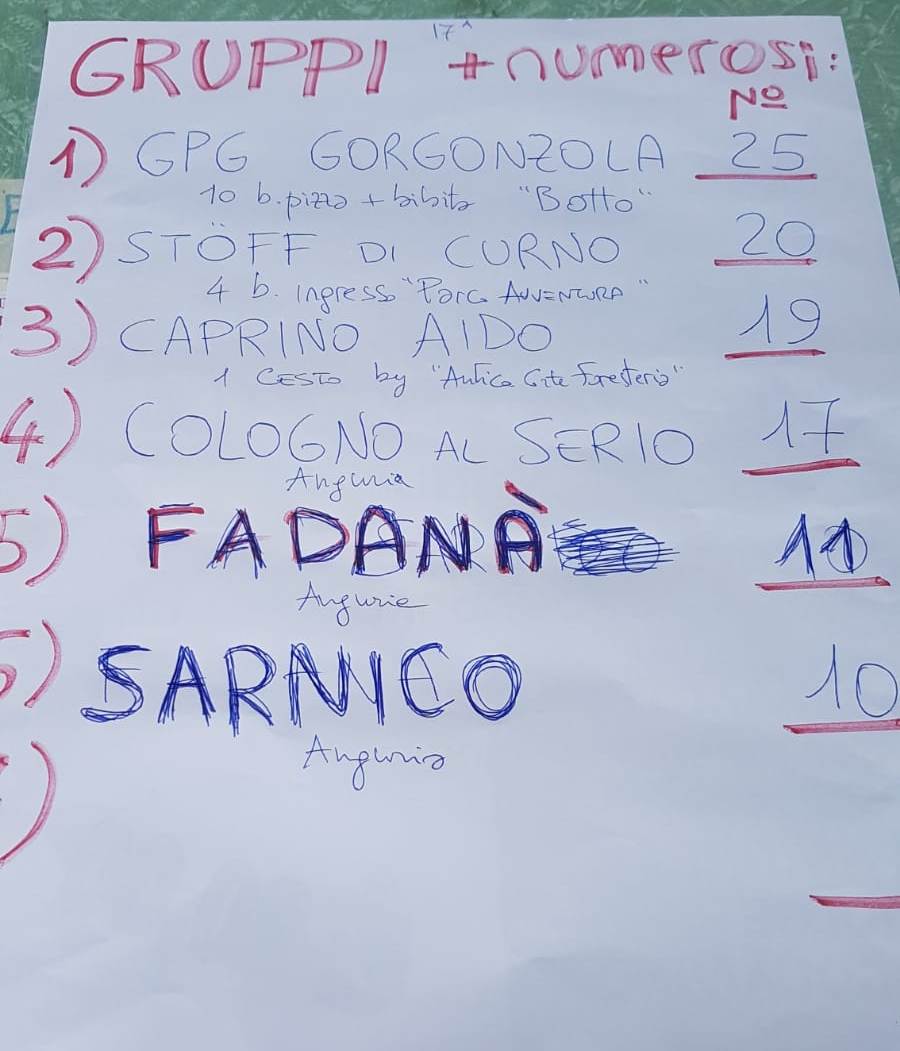 17^
GRUPPI + numerosi:
Nº
1) GPG GORGONZOLA 25
10 b. pizza + bibita "Botto"
2) STÖFF DI CURNO 20
4 b. Ingresso "Parc AVVENTURA"
3) CAPRINO AIDO 19
1 CESTO by "Antica Grte Foresteria"
4) COLOGNO AL SERIO 17
Anguria
5) FADANÀ 11
Angurie
6) SARNICO 10
Anguria
)